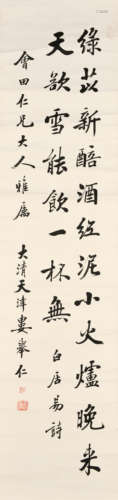 綠苡新醅酒紅泥小火爐晚来
天欲雪能飲一杯無 白居易詩
會田仁兄大人雅屬
大清天津婁舉仁